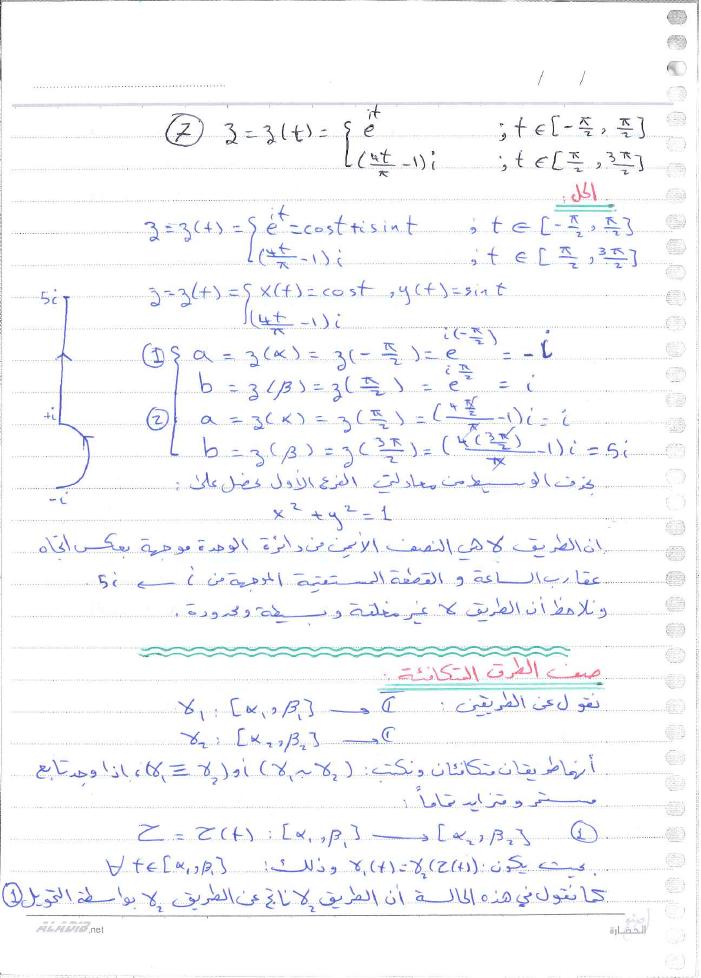 / /
⑦ z = z(t) = { e^{it} ; t ∈ [-π/2 , π/2]
((4t/π) -1)i ; t ∈ [π/2 , 3π/2]
الحل:
z = z(t) = { e^{it} = cost + i sint ; t ∈ [-π/2 , π/2]
((4t/π) -1)i ; t ∈ [π/2 , 3π/2]
z = z(t) = { x(t) = cost , y(t) = sint
((4t/π) -1)i
① { a = z(α) = z(-π/2) = e^{i(-π/2)} = -i
b = z(β) = z(π/2) = e^{iπ/2} = i
② a = z(α) = z(π/2) = ((4π/2)/π -1)i = i
b = z(β) = z(3π/2) = (4(3π/2)/π -1)i = 5i
5i
+i
-i
بحذف الوسيط من معادلتي الفرع الأول نحصل على:
x² + y² = 1
إن الطريق γ هي النصف الأيمن من دائرة الوحدة موجهة بعكس اتجاه
عقارب الساعة و القطعة المستقيمة الموجهة من i ← 5i.
ونلاحظ أن الطريق γ غير مغلقة وبسيطة ومحدودة.
صف الطرق المتكافئة:
نقول عن الطريقين: γ₁ : [α₁, β₁] → ℂ
γ₂ : [α₂, β₂] → ℂ
أنهما طريقان متكافئان ونكتب: (γ₁ ~ γ₂) أو (γ₁ ≡ γ₂)، إذا وجد تابع
مستمر و متزايد تماماً:
τ = τ(t) : [α₁, β₁] → [α₂, β₂] ①
بحيث يكون: γ₁(t) = γ₂(τ(t)) وذلك: ∀ t ∈ [α₁, β₁]
كما نقول في هذه الحالة أن الطريق γ₂ ناتج عن الطريق γ₂ بواسطة التحويل ①
ALADIB.net
الحضارة